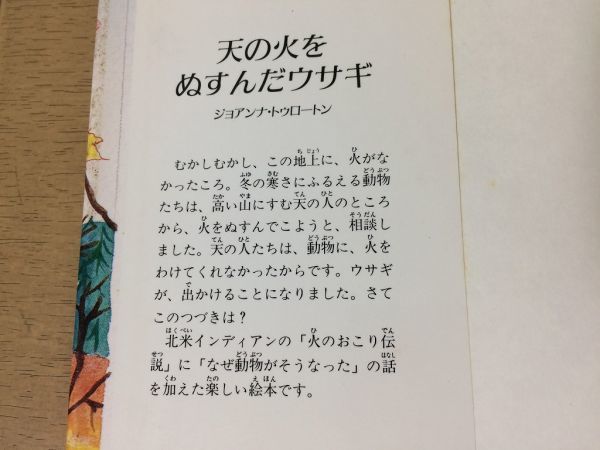 天の火を
ぬすんだウサギ
ジョアンナ・トゥロートン
むかしむかし、この地上に、火がな
かったころ。冬の寒さにふるえる動物
たちは、高い山にすむ天の人のところ
から、火をぬすんでこようと、相談し
ました。天の人たちは、動物に、火を
わけてくれなかったからです。ウサギ
が、出かけることになりました。さて
このつづきは？
北米インディアンの「火のおこり伝
説」に「なぜ動物がそうなった」の話
を加えた楽しい絵本です。